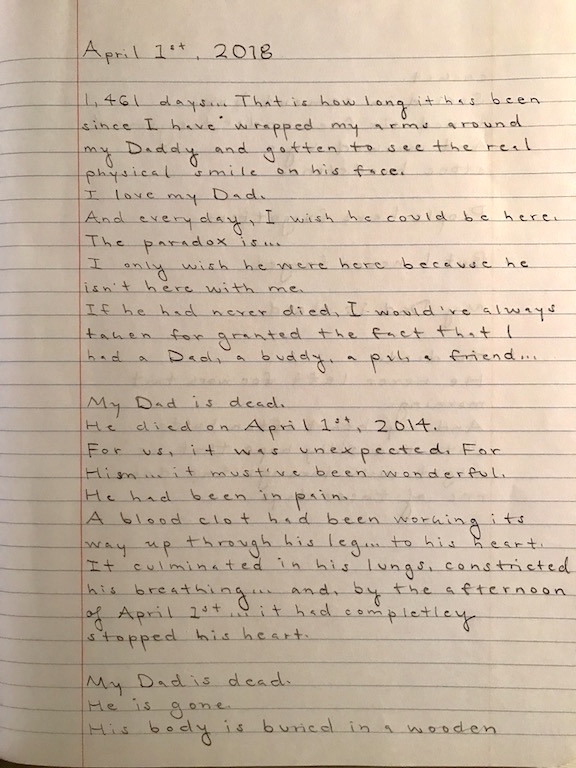 April 1st, 2018
1,461 days... That is how long it has been
since I have wrapped my arms around
my Daddy and gotten to see the real
physical smile on his face.
I love my Dad.
And every day, I wish he could be here.
The paradox is...
I only wish he were here because he
isn't here with me.
If he had never died, I would've always
taken for granted the fact that I
had a Dad, a buddy, a a friend...
My Dad is dead.
He died on April 1st, 2014.
For us, it was unexpected. For
Him... it must've been wonderful.
He had been in pain.
A blood clot had been working its
way up through his leg... to his heart.
It culminated in his lungs, constricted
his breathing... and, by the afternoon
of April 1st... it had completley
stopped his heart.
My Dad is dead.
He is gone.
His body is buried in a wooden